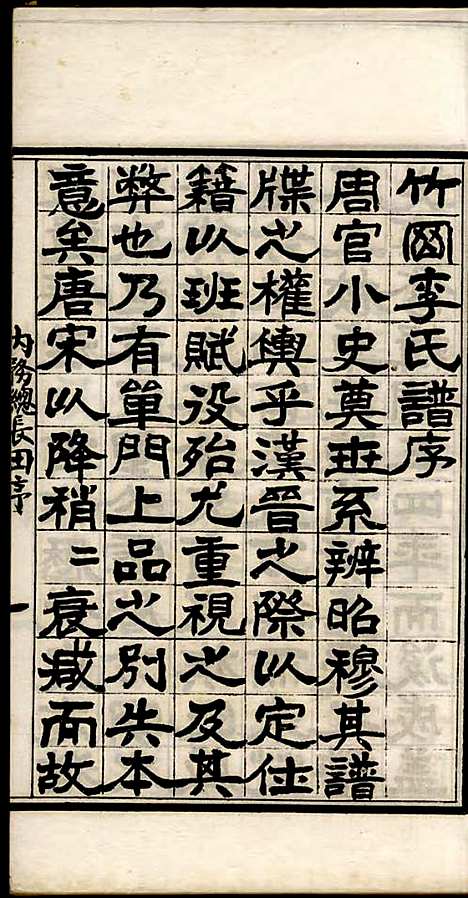 竹李氏譜序
周官小史奠世系辨昭穆其譜
牒之權輿乎漢晉之際以定仕
籍以班賦役殆尤重視之及其
弊也乃有單門上品之別失本
意矣唐宋以降稍二衰減而故
内務總長田序
一